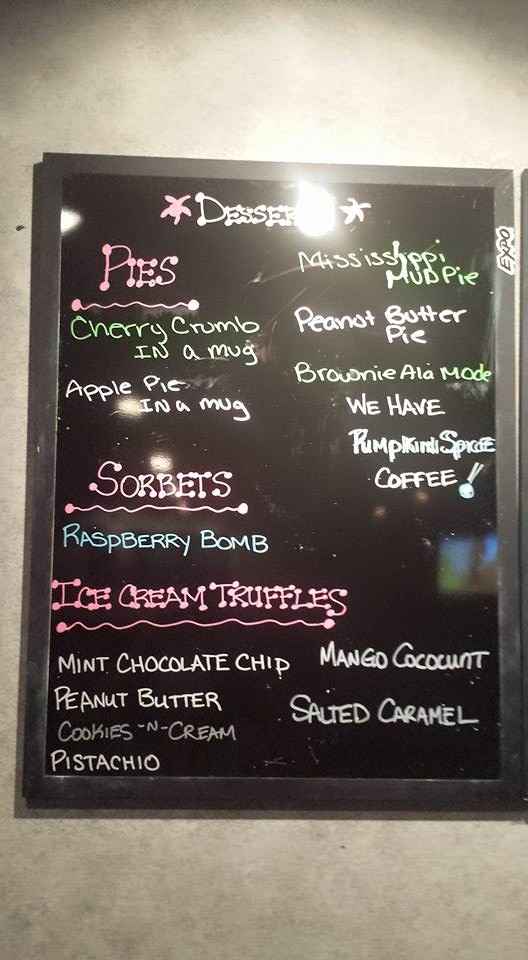 DESSERTS
PIES
Cherry Crumb
IN a mug
Apple Pie
IN a mug
Mississippi
MUD Pie
Peanut Butter
Pie
Brownie Ala Mode
WE HAVE
PUMPKIN SPICE
COFFEE
SORBETS
RASPBERRY BOMB
ICE CREAM TRUFFLES
MINT CHOCOLATE CHIP
PEANUT BUTTER
COOKIES -N- CREAM
PISTACHIO
MANGO COCOCUNT
SALTED CARAMEL
EXPO